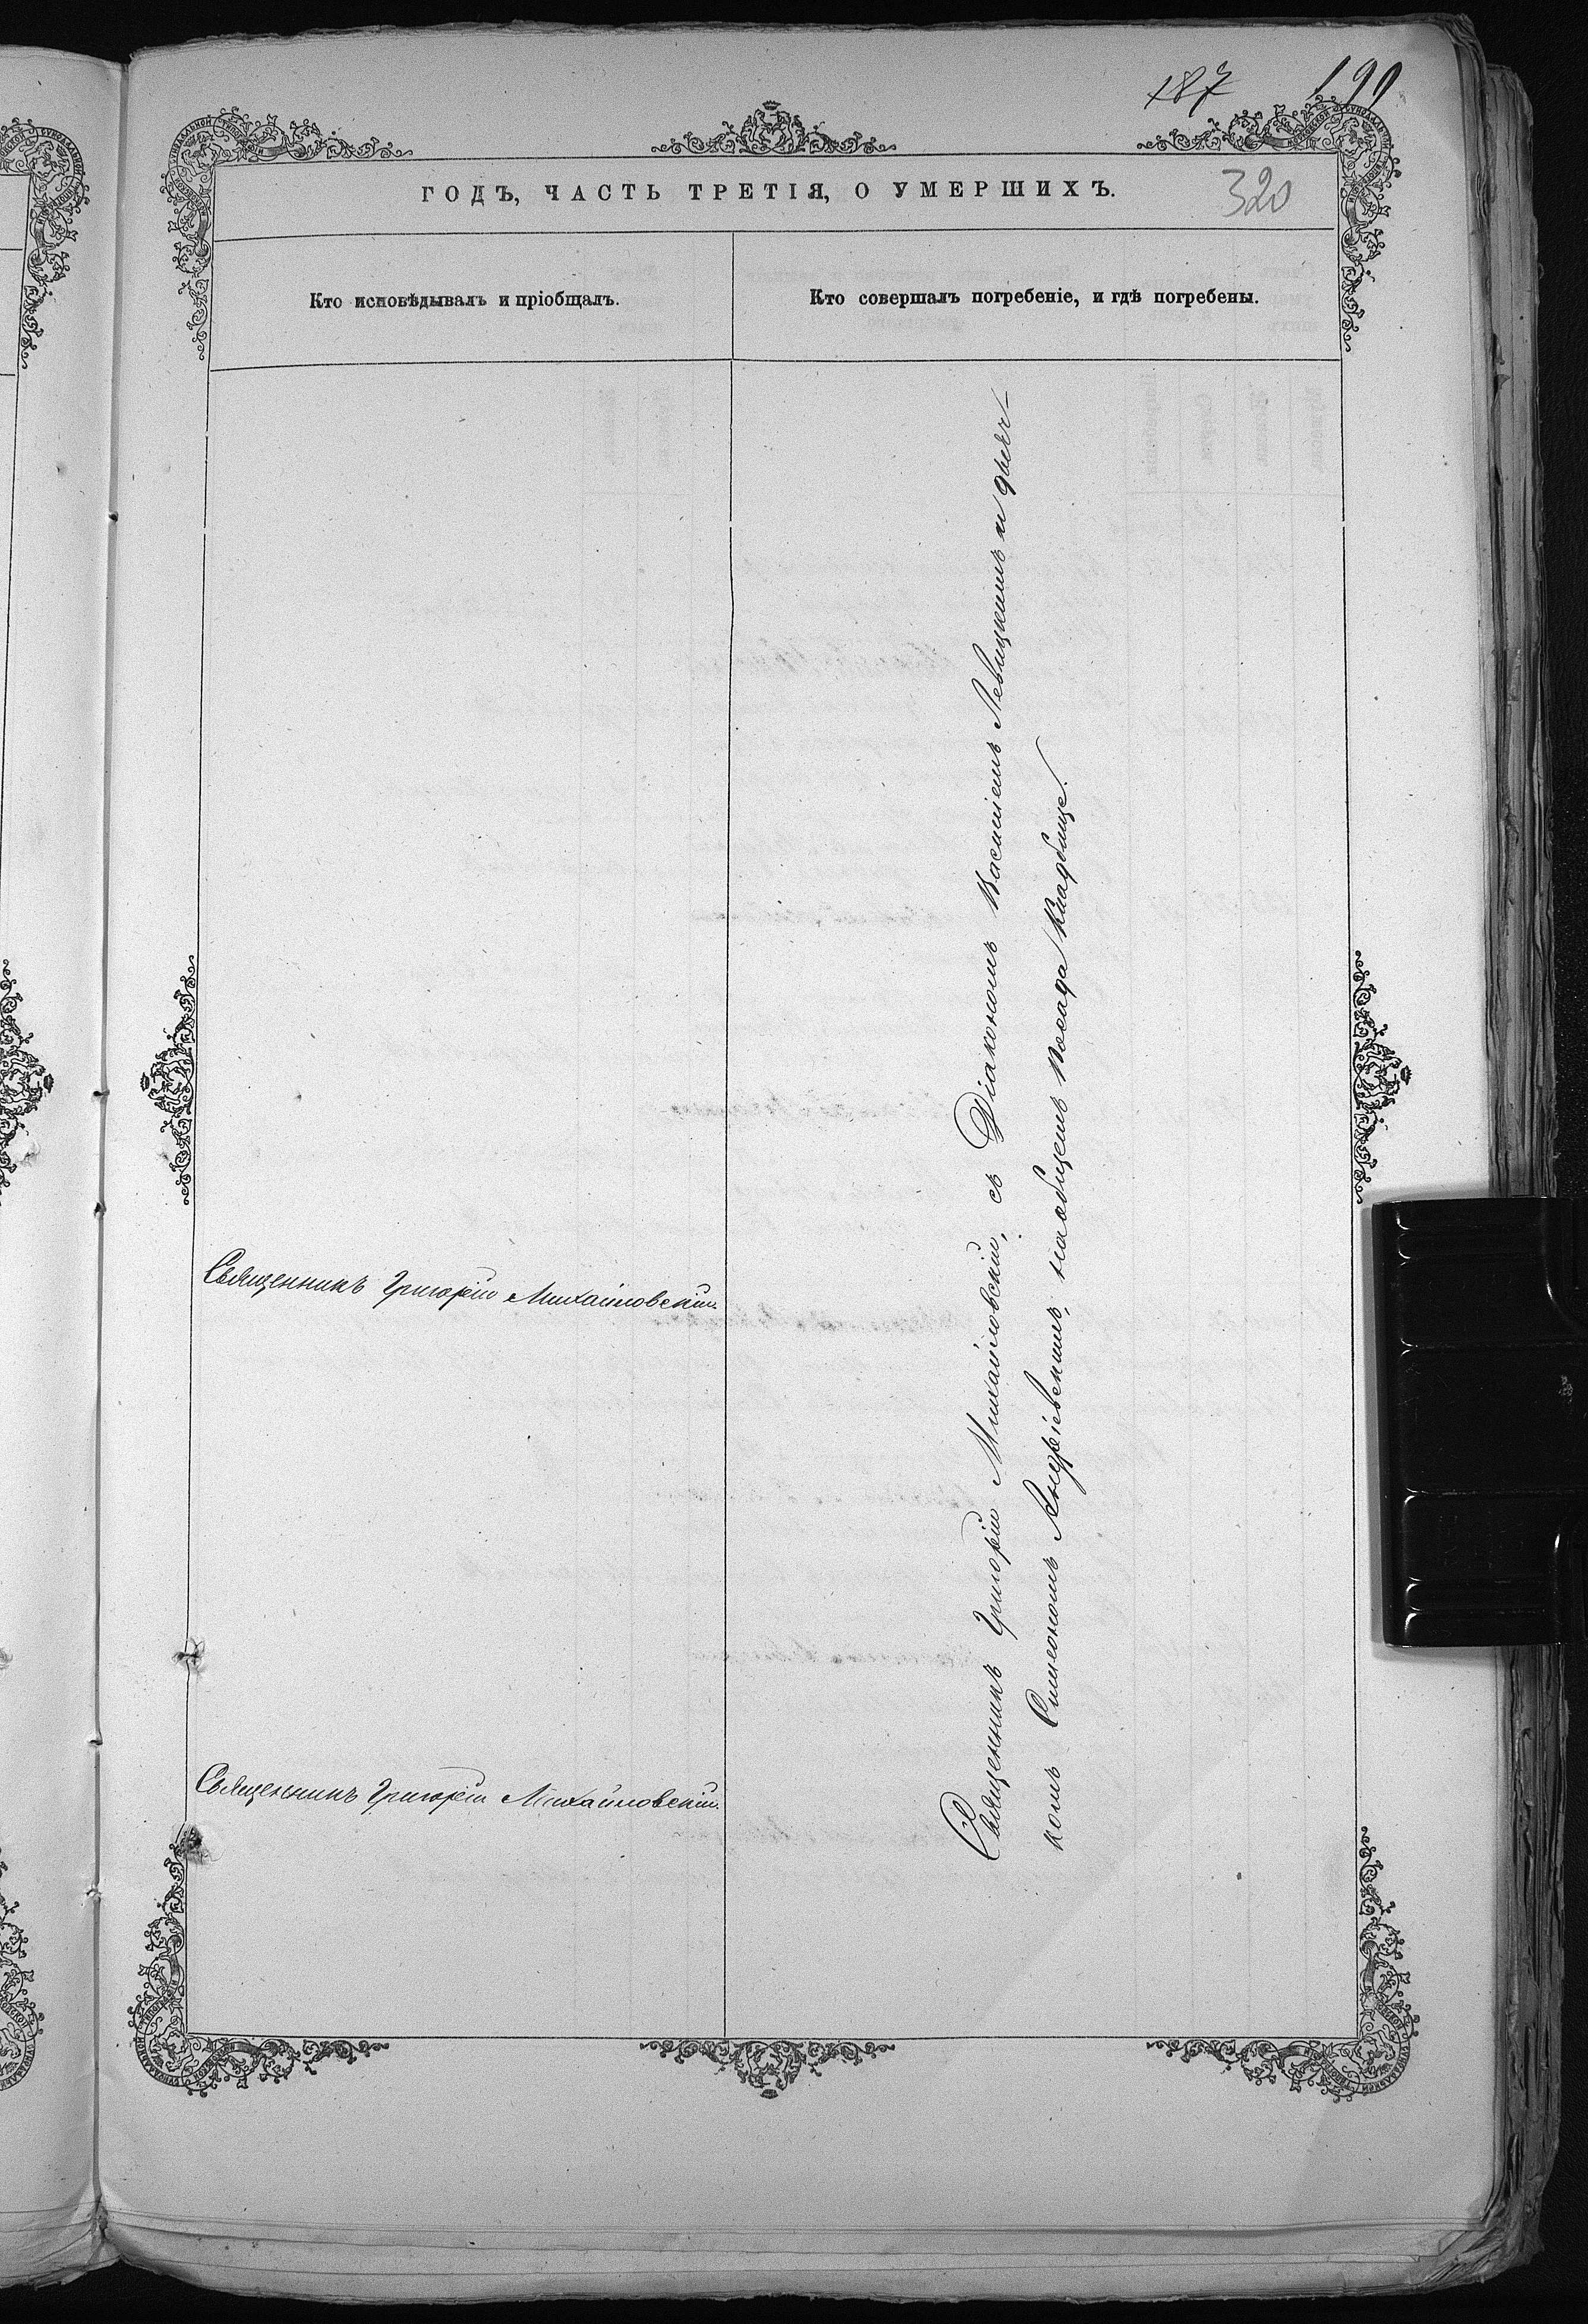 187
199
320
ГОДЪ, ЧАСТЬ ТРЕТІЯ, О УМЕРШИХЪ.
Кто исповѣдывалъ и пріобщалъ.
Кто совершалъ погребеніе, и гдѣ погребены.
Священникъ Григорій Михайловскій.
Священникъ Григорій Михайловскій.
Священникъ Григорій Михайловскій, съ Діакономъ Василіемъ Левицкимъ и дьяч-
комъ Симеономъ Андріевскимъ, на общемъ посада кладбище.